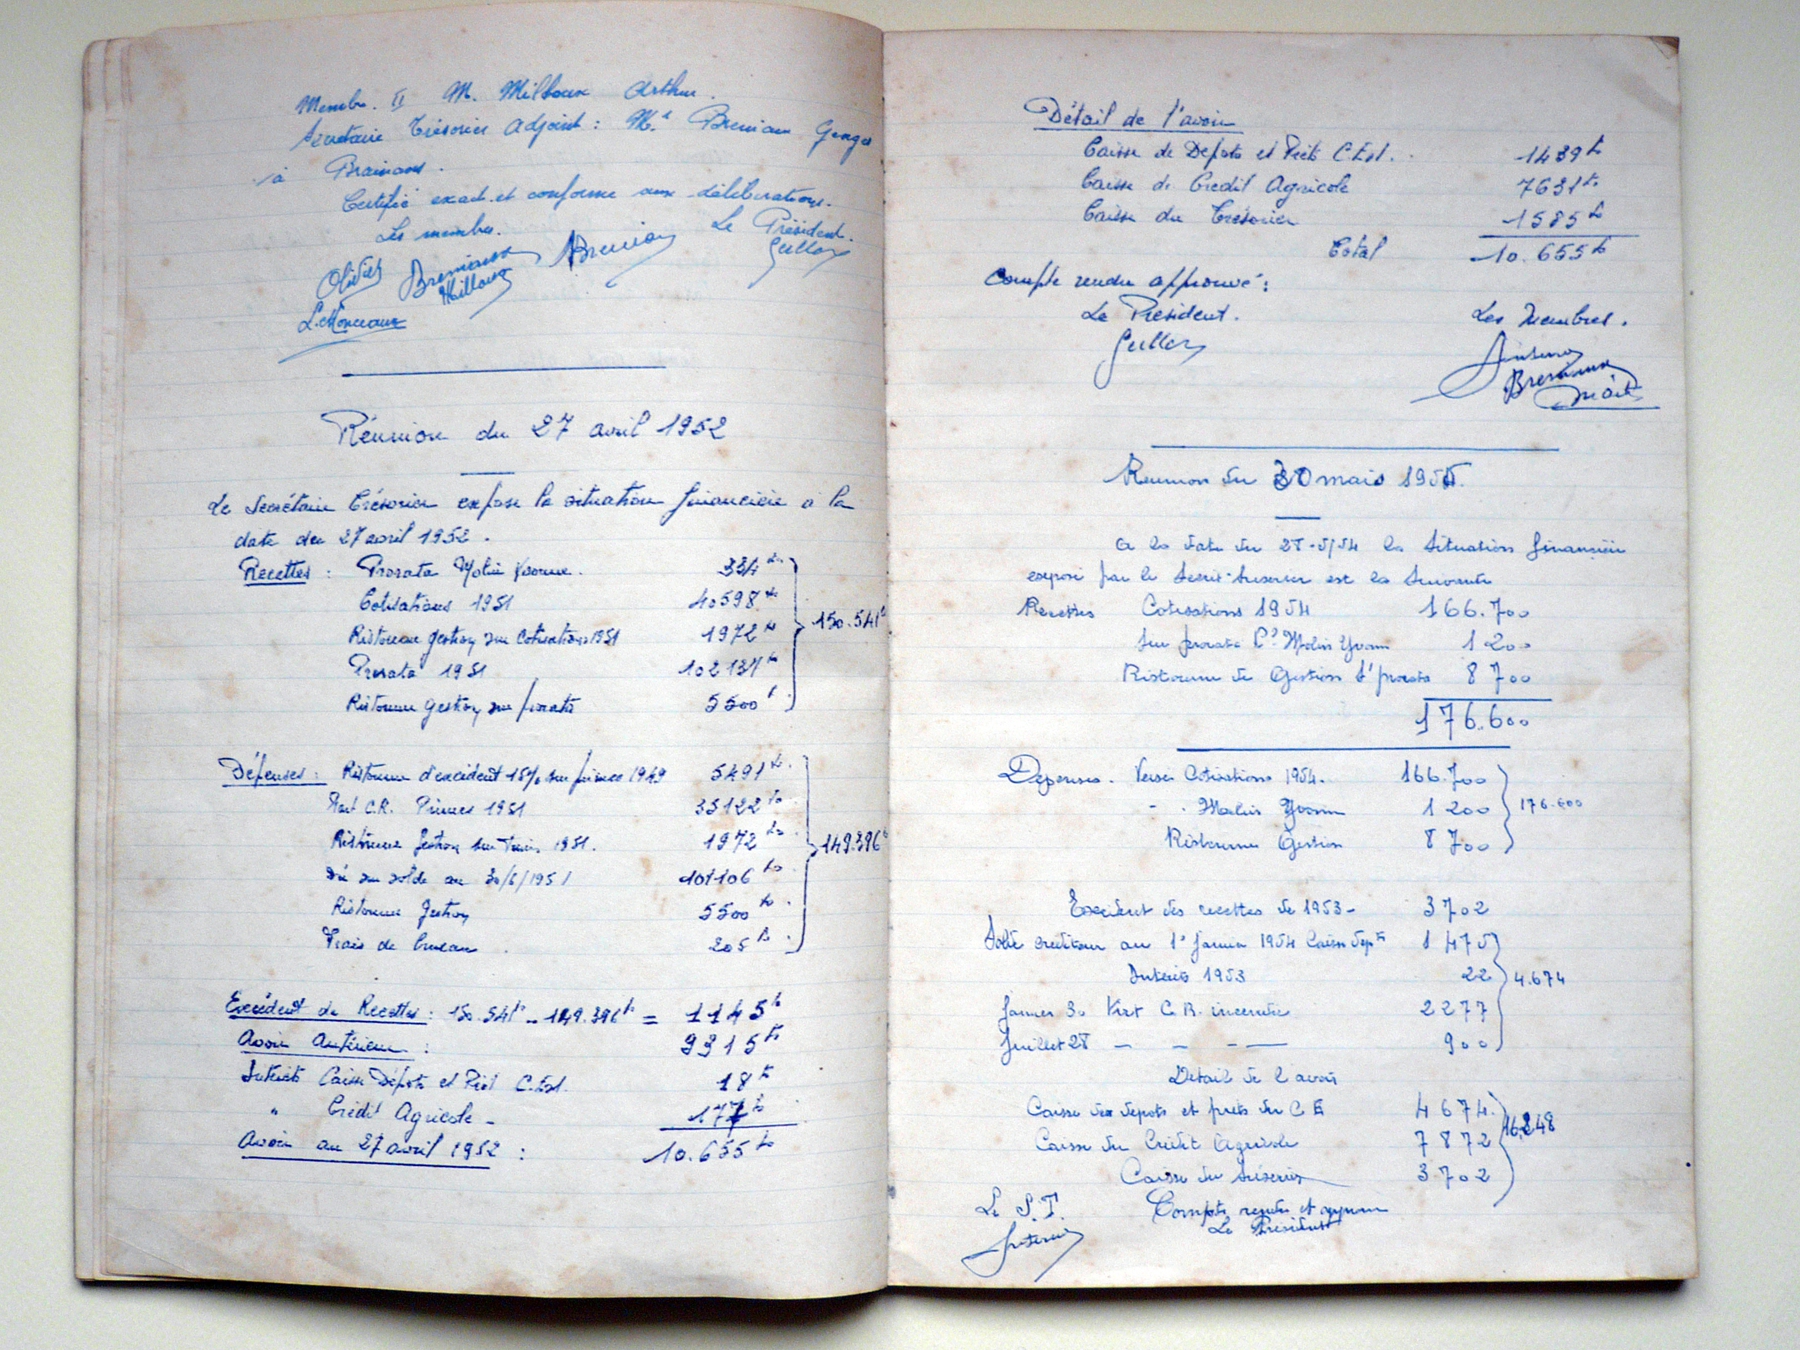 Membre II M. Milloux Arthur.
Secrétaire Trésorier Adjoint : Mr Bremaux
à
Certifié exact et conforme aux délibérations.
Les membres. Le Président.
Olivier Bremaux
Milloux
L. Monceaux
Réunion du 27 avril 1952
Le Secrétaire Trésorier expose la situation financière à la
date du 27 avril 1952.
Recettes : Prorata Molin Yvonne. 334 frs
Cotisations 1951 40598 frs
Ristourne gestion sur cotisations 1951 1972 frs 150.541 frs
Prorata 1951 102137 frs
Ristourne gestion sur prorata 5500 f
Dépenses : Ristourne d'excédent 15% sur primes 1949 5491 frs
Part C.R. Primes 1951 35122 frs
Ristourne gestion sur 1951. 1972 frs 149.396 f
Dû sur solde au 30/6/1951 101106 frs
Ristourne gestion 5500 frs
Frais de bureau 205 frs
Excédent de Recettes : 150.541 fr - 149.396 fr = 1145 fr
Avoir Antérieur : 9315 fr
Intérêts Caisse Dépôts et Prêt C. Est. 18 fr
" Crédit Agricole - 177 fr
Avoir au 27 avril 1952 : 10.655 fr
Détail de l'avoir
Caisse de Dépots et Prêts C. Est. 1439 fr
Caisse de Crédit Agricole 7631 fr
Caisse du Trésorier 1585 fr
Total 10.655 fr
Compte rendu approuvé :
Le Président. Les Membres.
Bremaux
Réunion du 30 mais 195
A la date du 28-5/54 la situation financière
exposé par le Secrét-Trésorier est la suivante
Recettes Cotisations 1954 166.700
sur prorata Molin Yvonne 1 200
Ristourne de Gestion s/ prorata 8 700
176.600
Dépenses. Versé Cotisations 1954. 166.700
- . Molin Yvonne 1 200 176.600
Ristourne Gestion 8 700
Excédent des recettes de 1953 - 3702
Solde créditeur au 1er Janvier 1954 Caisse Dépts 1 475
Intérêts 1953 22 4.674
Janvier 30 Virt C.R. incendie 2277
Juillet 28 - - - — 900
Détail de l avoir
Caisse des dépots et prêts du C E 4674
Caisse du Crédit Agricole 7872 16.248
Caisse du trésorier 3702
Le S.T. Compte rendu et approuvé
Le Président